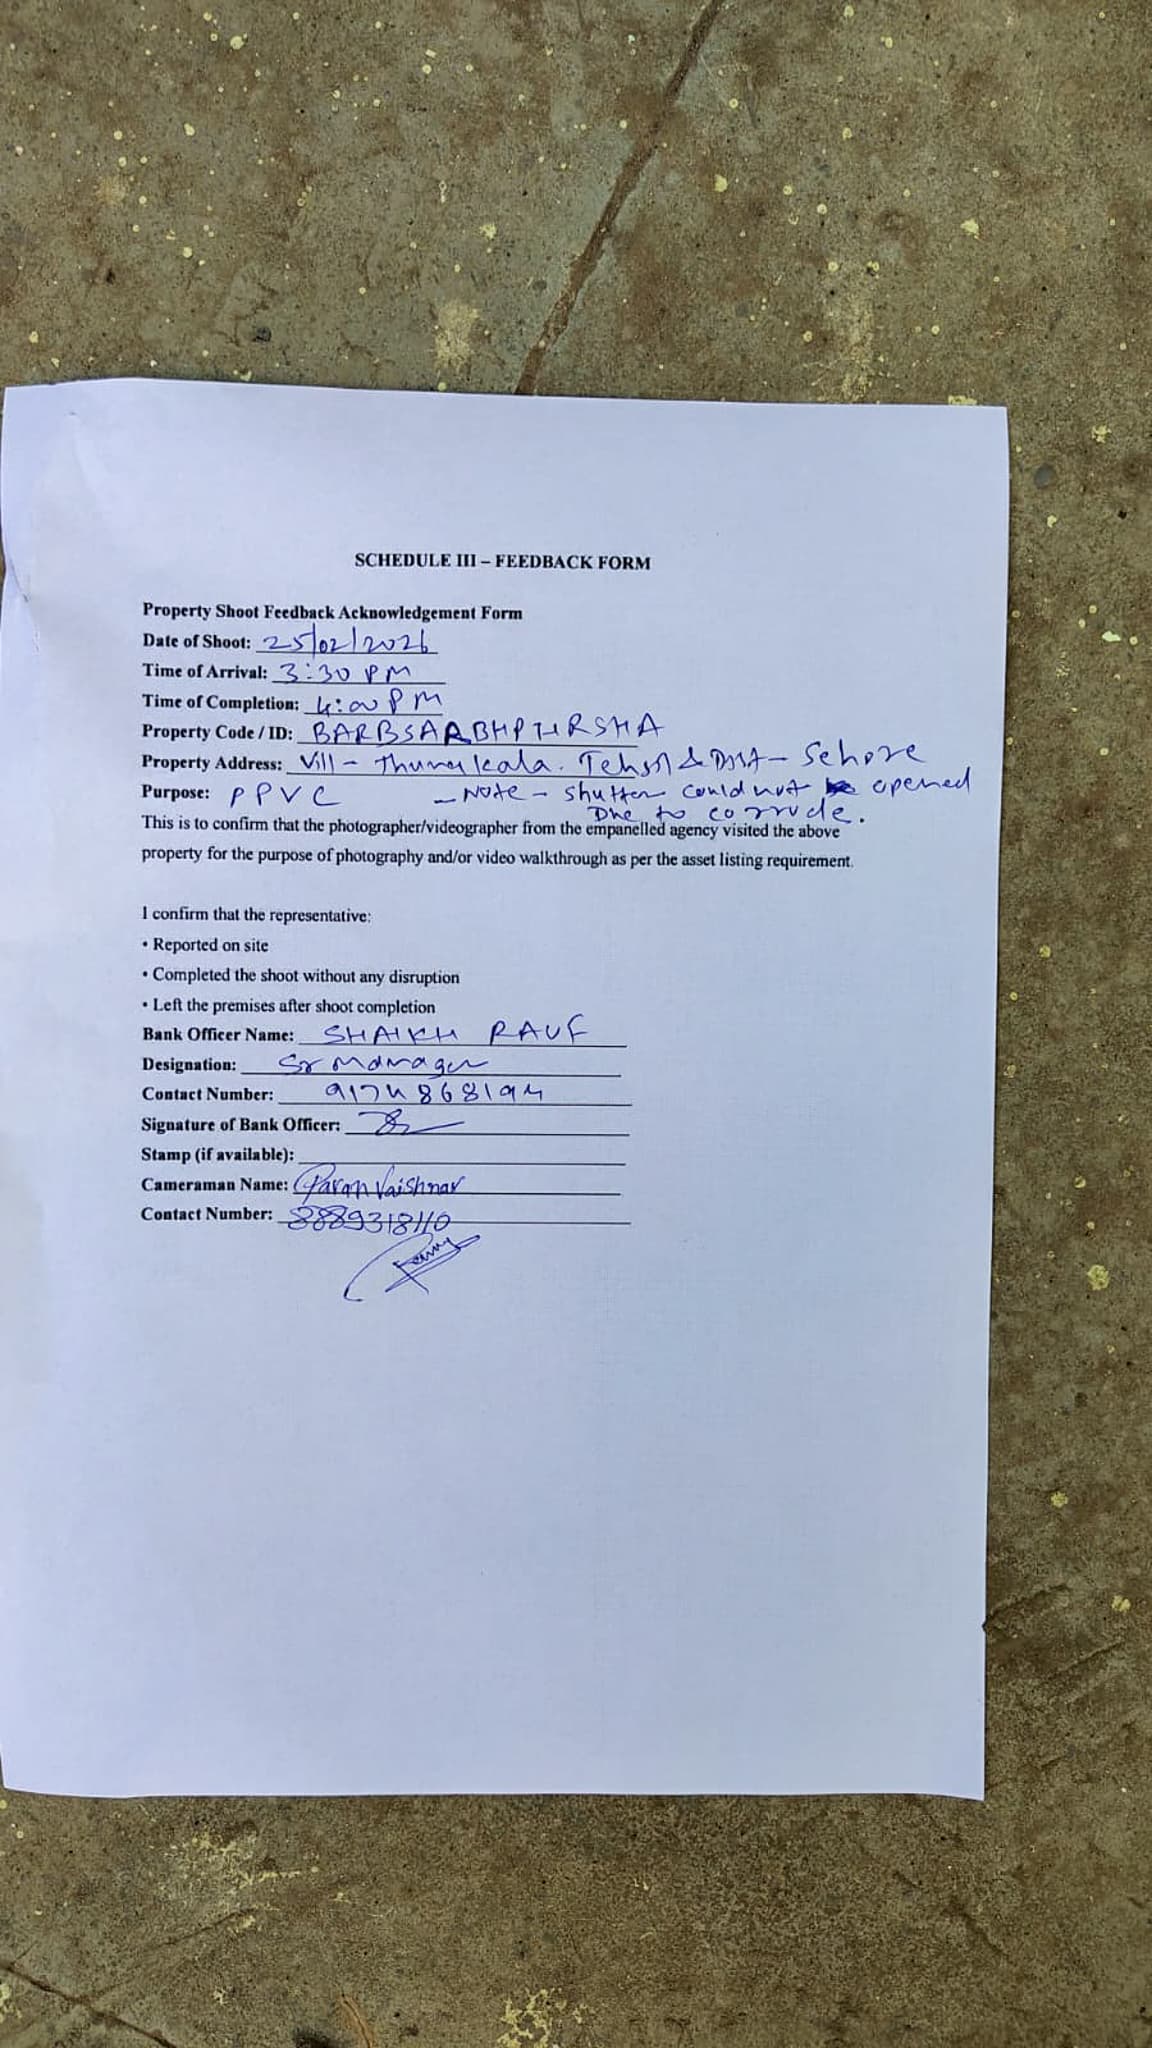 SCHEDULE III – FEEDBACK FORM
Property Shoot Feedback Acknowledgement Form
Date of Shoot: 25/02/2026
Time of Arrival: 3:30 PM
Time of Completion: 4:00 PM
Property Code / ID:
Property Address: Vill - Kala. Tehsil & Distt - Sehore
Purpose: PPVC - Note - Shutter could not opened
Due to corrude.
This is to confirm that the photographer/videographer from the empanelled agency visited the above
property for the purpose of photography and/or video walkthrough as per the asset listing requirement.
I confirm that the representative:
• Reported on site
• Completed the shoot without any disruption
• Left the premises after shoot completion
Bank Officer Name: SHAIKH RAUF
Designation: Sr Manager
Contact Number: 9174868194
Signature of Bank Officer:
Stamp (if available):
Cameraman Name: Vaishnav
Contact Number: 8889318110